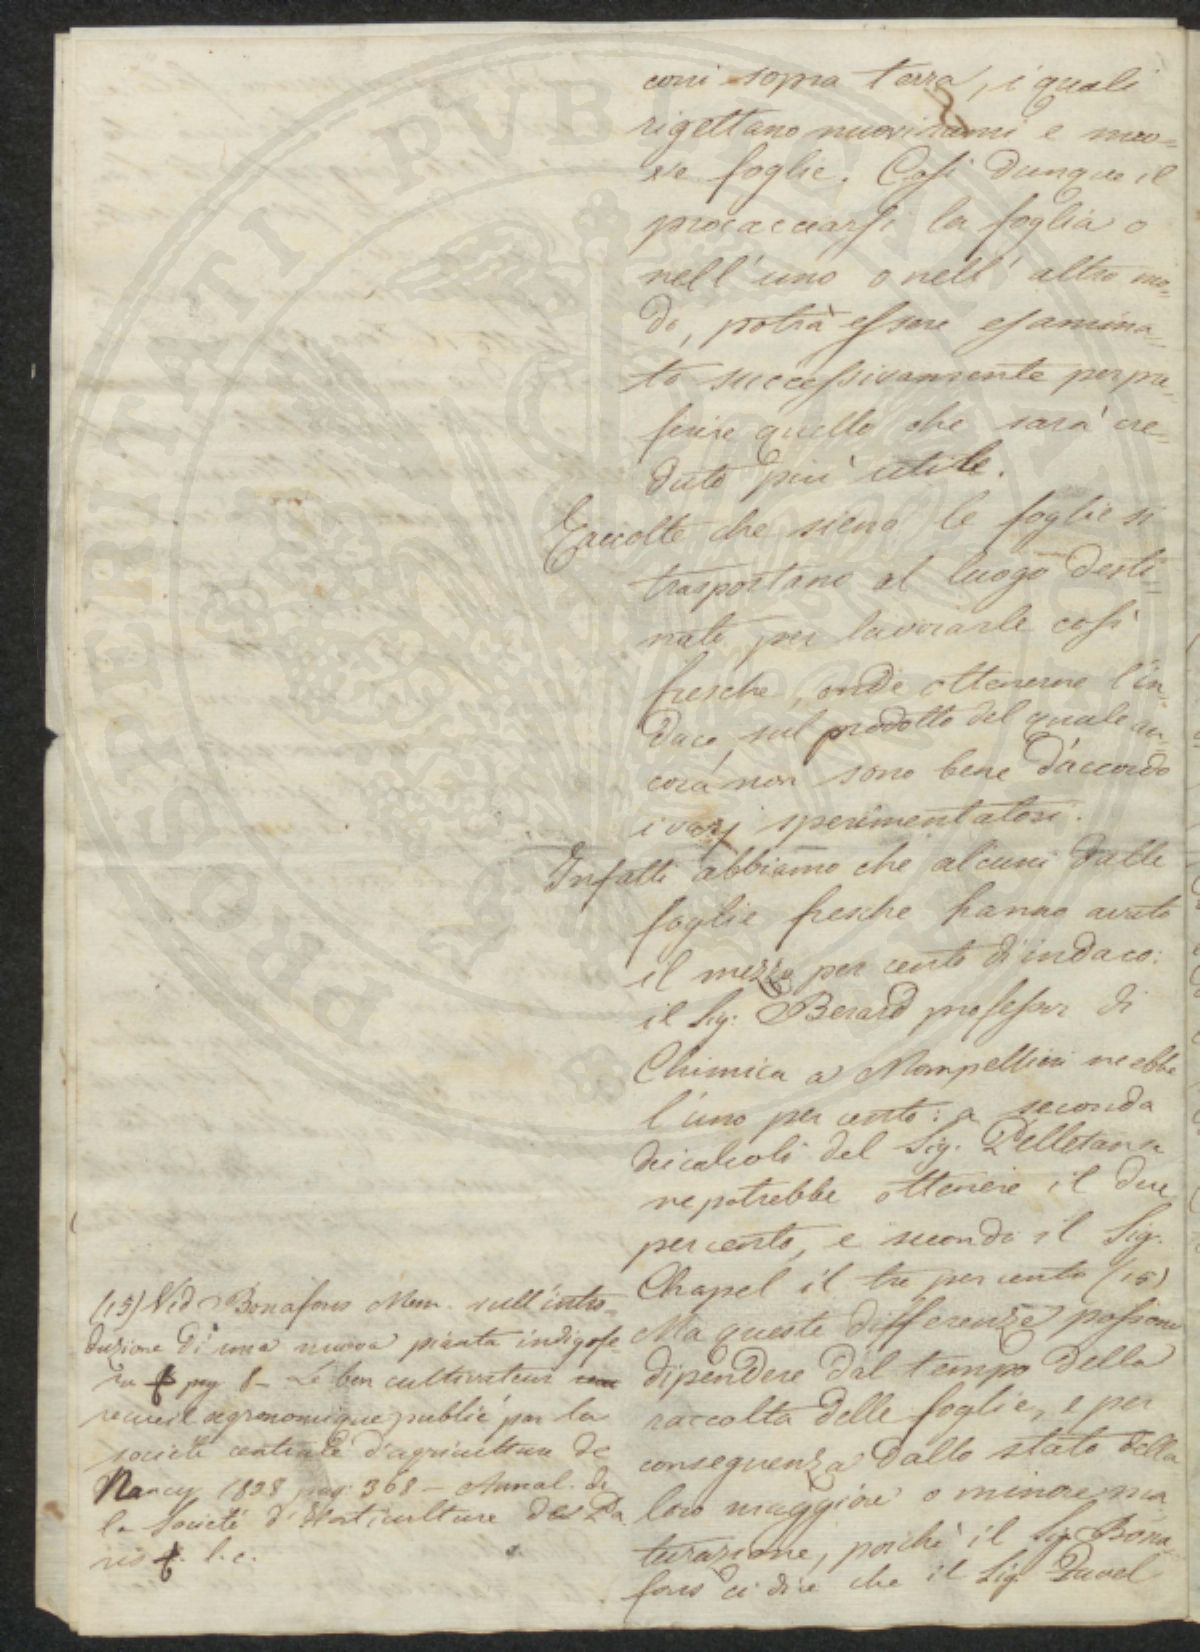 coni sopra terra, i quali
rigettano nuovi rami e nuo=
ve foglie. Così dunque il
procacciarsi la foglia o
nell'uno o nell'altro mo=
do, potrà essere esamina=
to successivamente per pre=
ferire quello che sarà cre=
duto più utile.
Raccolte che sieno le foglie si
trasportano al luogo desti=
nato per lavorarle così
fresche, onde ottenerne l'in=
daco, sul prodotto del quale an=
cora non sono bene d'accordo
i varj sperimentatori.
Infatti abbiamo che alcuni dalle
foglie fresche hanno avuto
il mezzo per cento d'indaco:
il Sig. Berard professor di
Chimica a Mompellieri ne ebbe
l'uno per cento: a seconda
dei calcoli del Sig. Pelletan se
ne potrebbe ottenere il due
per cento, e secondo il Sig.
Chapel il tre per cento (15)
Ma queste differenze possono
dipendere dal tempo della
raccolta delle foglie, e per
conseguenza dallo stato della
loro maggiore o minore ma
turazione, poichè il Sig. Bona
fous ci dice che il Sig.
(15) Ved. Bonafous Mem. sull'intro=
duzione di una nuova pianta indigofe=
ra pag 8 – Le bon cultivateur
recueil agronomique publié par la
société centrale d'agriculture de
Nancy 1828 pag. 368 – Annal. de
la Société d'Horticulture de Pa
ris l. c.
PROSPERITATI PUBLICAE